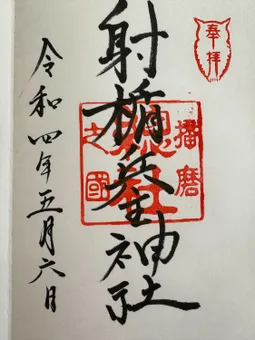 奉拝
射楯兵主神社
播磨
之國
総社
令和四年五月六日